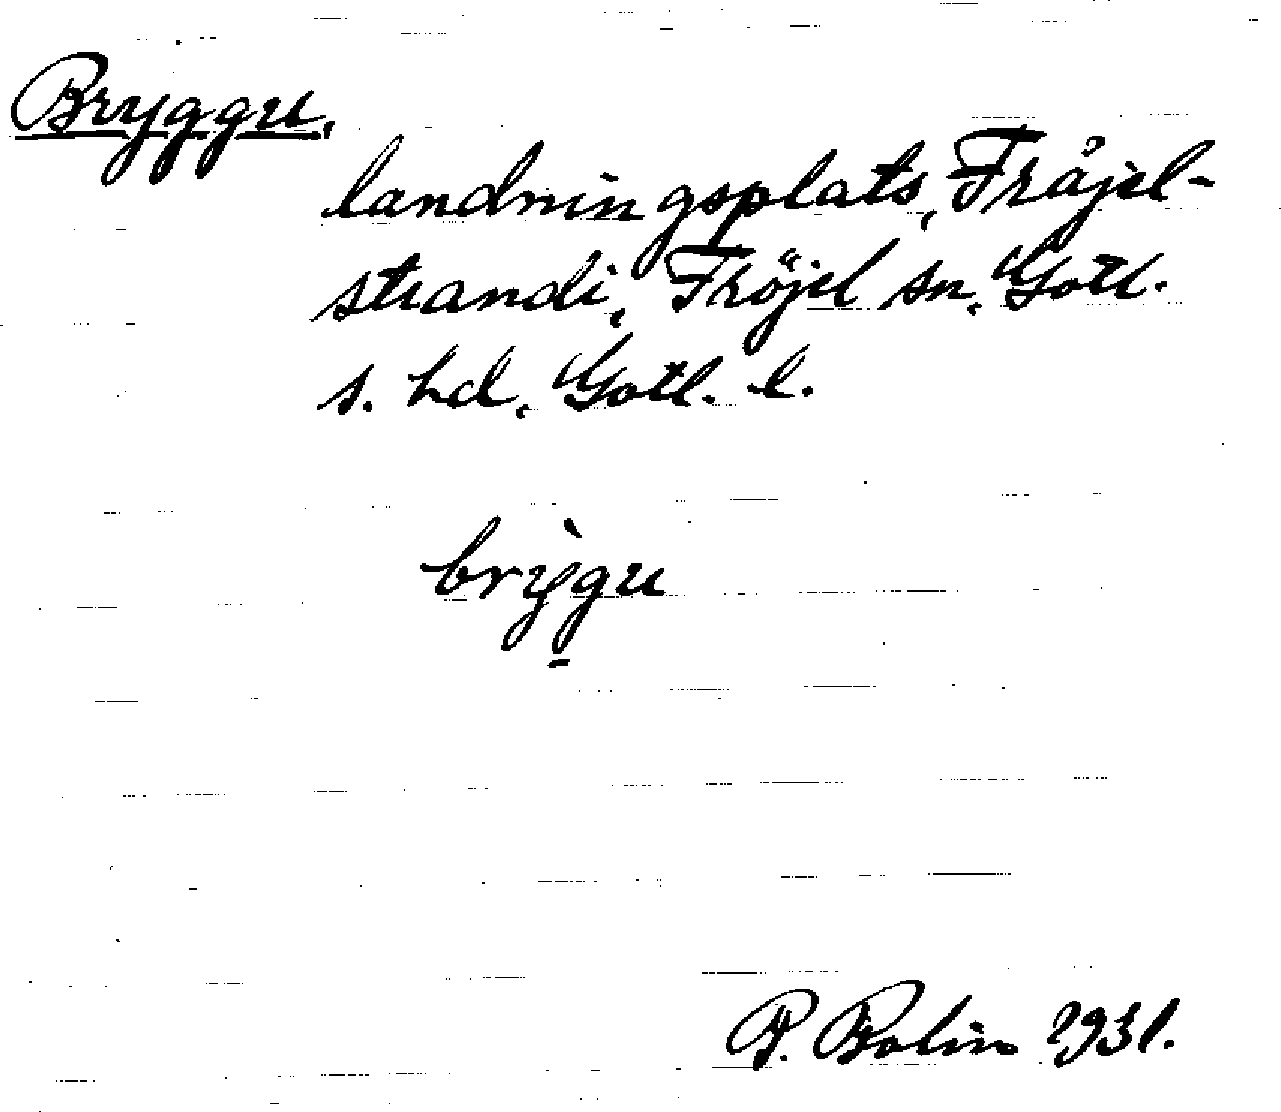 Bryggu,
landningsplats, Fråjel-
strandi, Fröjel sn, Gotl.
s. hd, Gotl. l.
brỳgu
P. Bolin 1931.